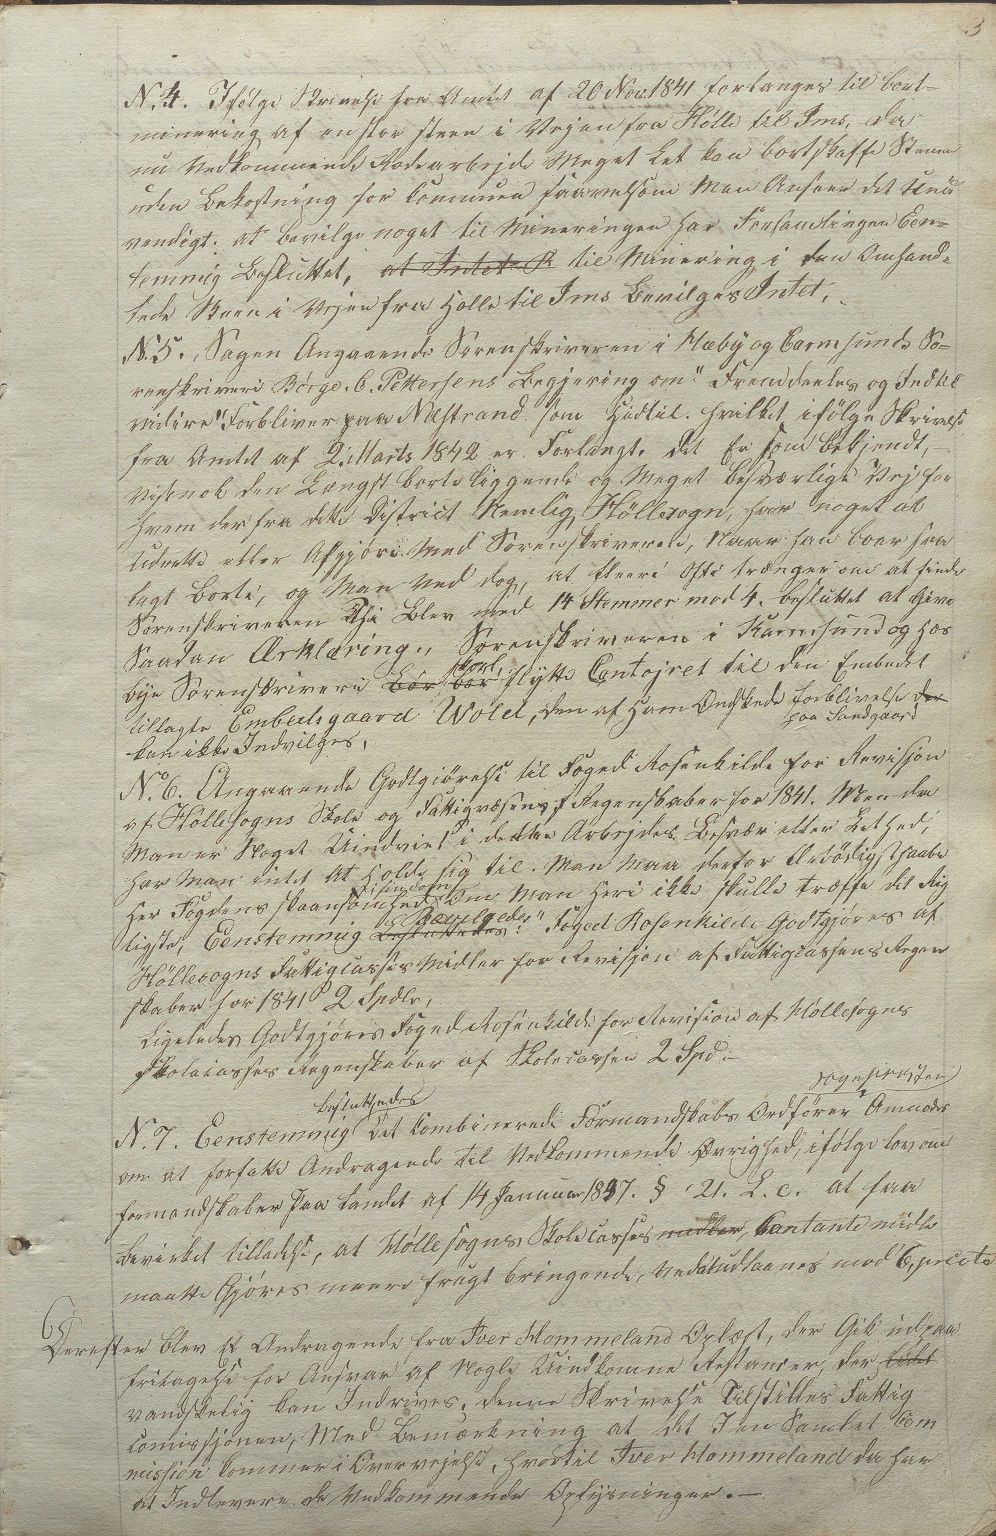 3
N. 4. Ifølge Skrivelse fra Amtet af 20 Nov. 1841 forlanges til bort-
minering af en stor Steen i Vejen fra Hölle til Ims, da
nu Vedkommende Rodearbejde Meget Let kan bortskaffe Stenen
uden Bekostning for Communen saavelsom Man Anseer det Unö
vendigt. at bevilge noget til Mineringen har Forsamlingen Een-
stemmig Besluttet, at Intet til Minering i den Omhand-
lede Steen i Vejen fra Hölle til Ims Bevilges Intet.
N. 5. Sagen Angaaende Sorenskriveren i Hæby og Carmsunds So-
renskriveri Börge. C. Pettersens Begjering om "Fremdeeles og Indtil
vidire" Forbliver paa Næstrand som Hidtil. hvilket ifölge Skrivelse
fra Amtet af 2. Marts 1842 er Forlangt. Det Er som bekjendt,
vistnok den Længst borte liggende og Meget besværlige Vej for
hvem der fra dette District Nemlig Höllesogn, har noget at
Udrette eller Afgjöre Med Sorenskriveren, Naar han boer saa
langt Borte, og Man Ved dog, at fleere Ofte trænger om at finde
Sorenskriveren Thi Blev med 14 Stemmer mod 4. besluttet at Give
Saadan Ærklæring., Sorenskriveren i Karmsund og Hæs
bye Sorenskriveri bör bör skal, flytte Contojret til den Embedet
tillagte Embedsgaard Wold, den af Ham Önskede forblivelse der paa Sandgaard
kan ikke Indvilges,
No. 6. Angaaende Godtgiörelse til Foged Rosenkilde for Revissjon
af Höllesogns Skole og Fattigvæsens Regenskaber for 1841. Men da
Man er Noget Uindviet i dette Arbejdes Besvær eller Lethed,
har Man intet At Holde sig til. Man Maa derfor Ærbödigst haabe
Her Fogdens skaansomhed Om Man Heri ikke skulle træffe det Rig
tigste, Eenstemmig Besluttedes Bevilgedes: "Foged Rosenkilde Godtgjöres af
Höllesogns Fattigcasses Midler for Revisjon af Fattigcassens Regen
skaber for 1841 2 Spdlr,
Ligeledes Godtgjöres Foged Rosenkilde for Revision af Höllesogns
Skolecasses Regenskaber af Skolecassen 2 Spd.
N. 7. Eenstemmig besluttedes Det Combinerede Formandskabs Ordförer Sogepresten Anmodes
om at forfatte Andragende til Vedkommende Øvrighed, ifölge lov om
formandskaber paa Landet af 14 Januar 1837. § 21. L. c. at faa
bevirket tilladelse, at Höllesogns Skolecasses midler, Contante midle
maatte Gjöres meere frugt bringende, Ved Udlaanes mod 6, precto
Derefter blev Et Andragende fra Iver Hommeland Oplæst, der Gik ud paa
fritagelse for Ansvar af Nogle Uindkomne Restancer, der
vanskelig kan Indrives. denne Skrivelse Tilstilles Fattig
Comissjonen, Med Bemærkning at det I en Samlet Com
mission kommer i Overvejelse, hvortil Iver Hommeland da har
at Indlevere de Vedkommende Oplysninger.